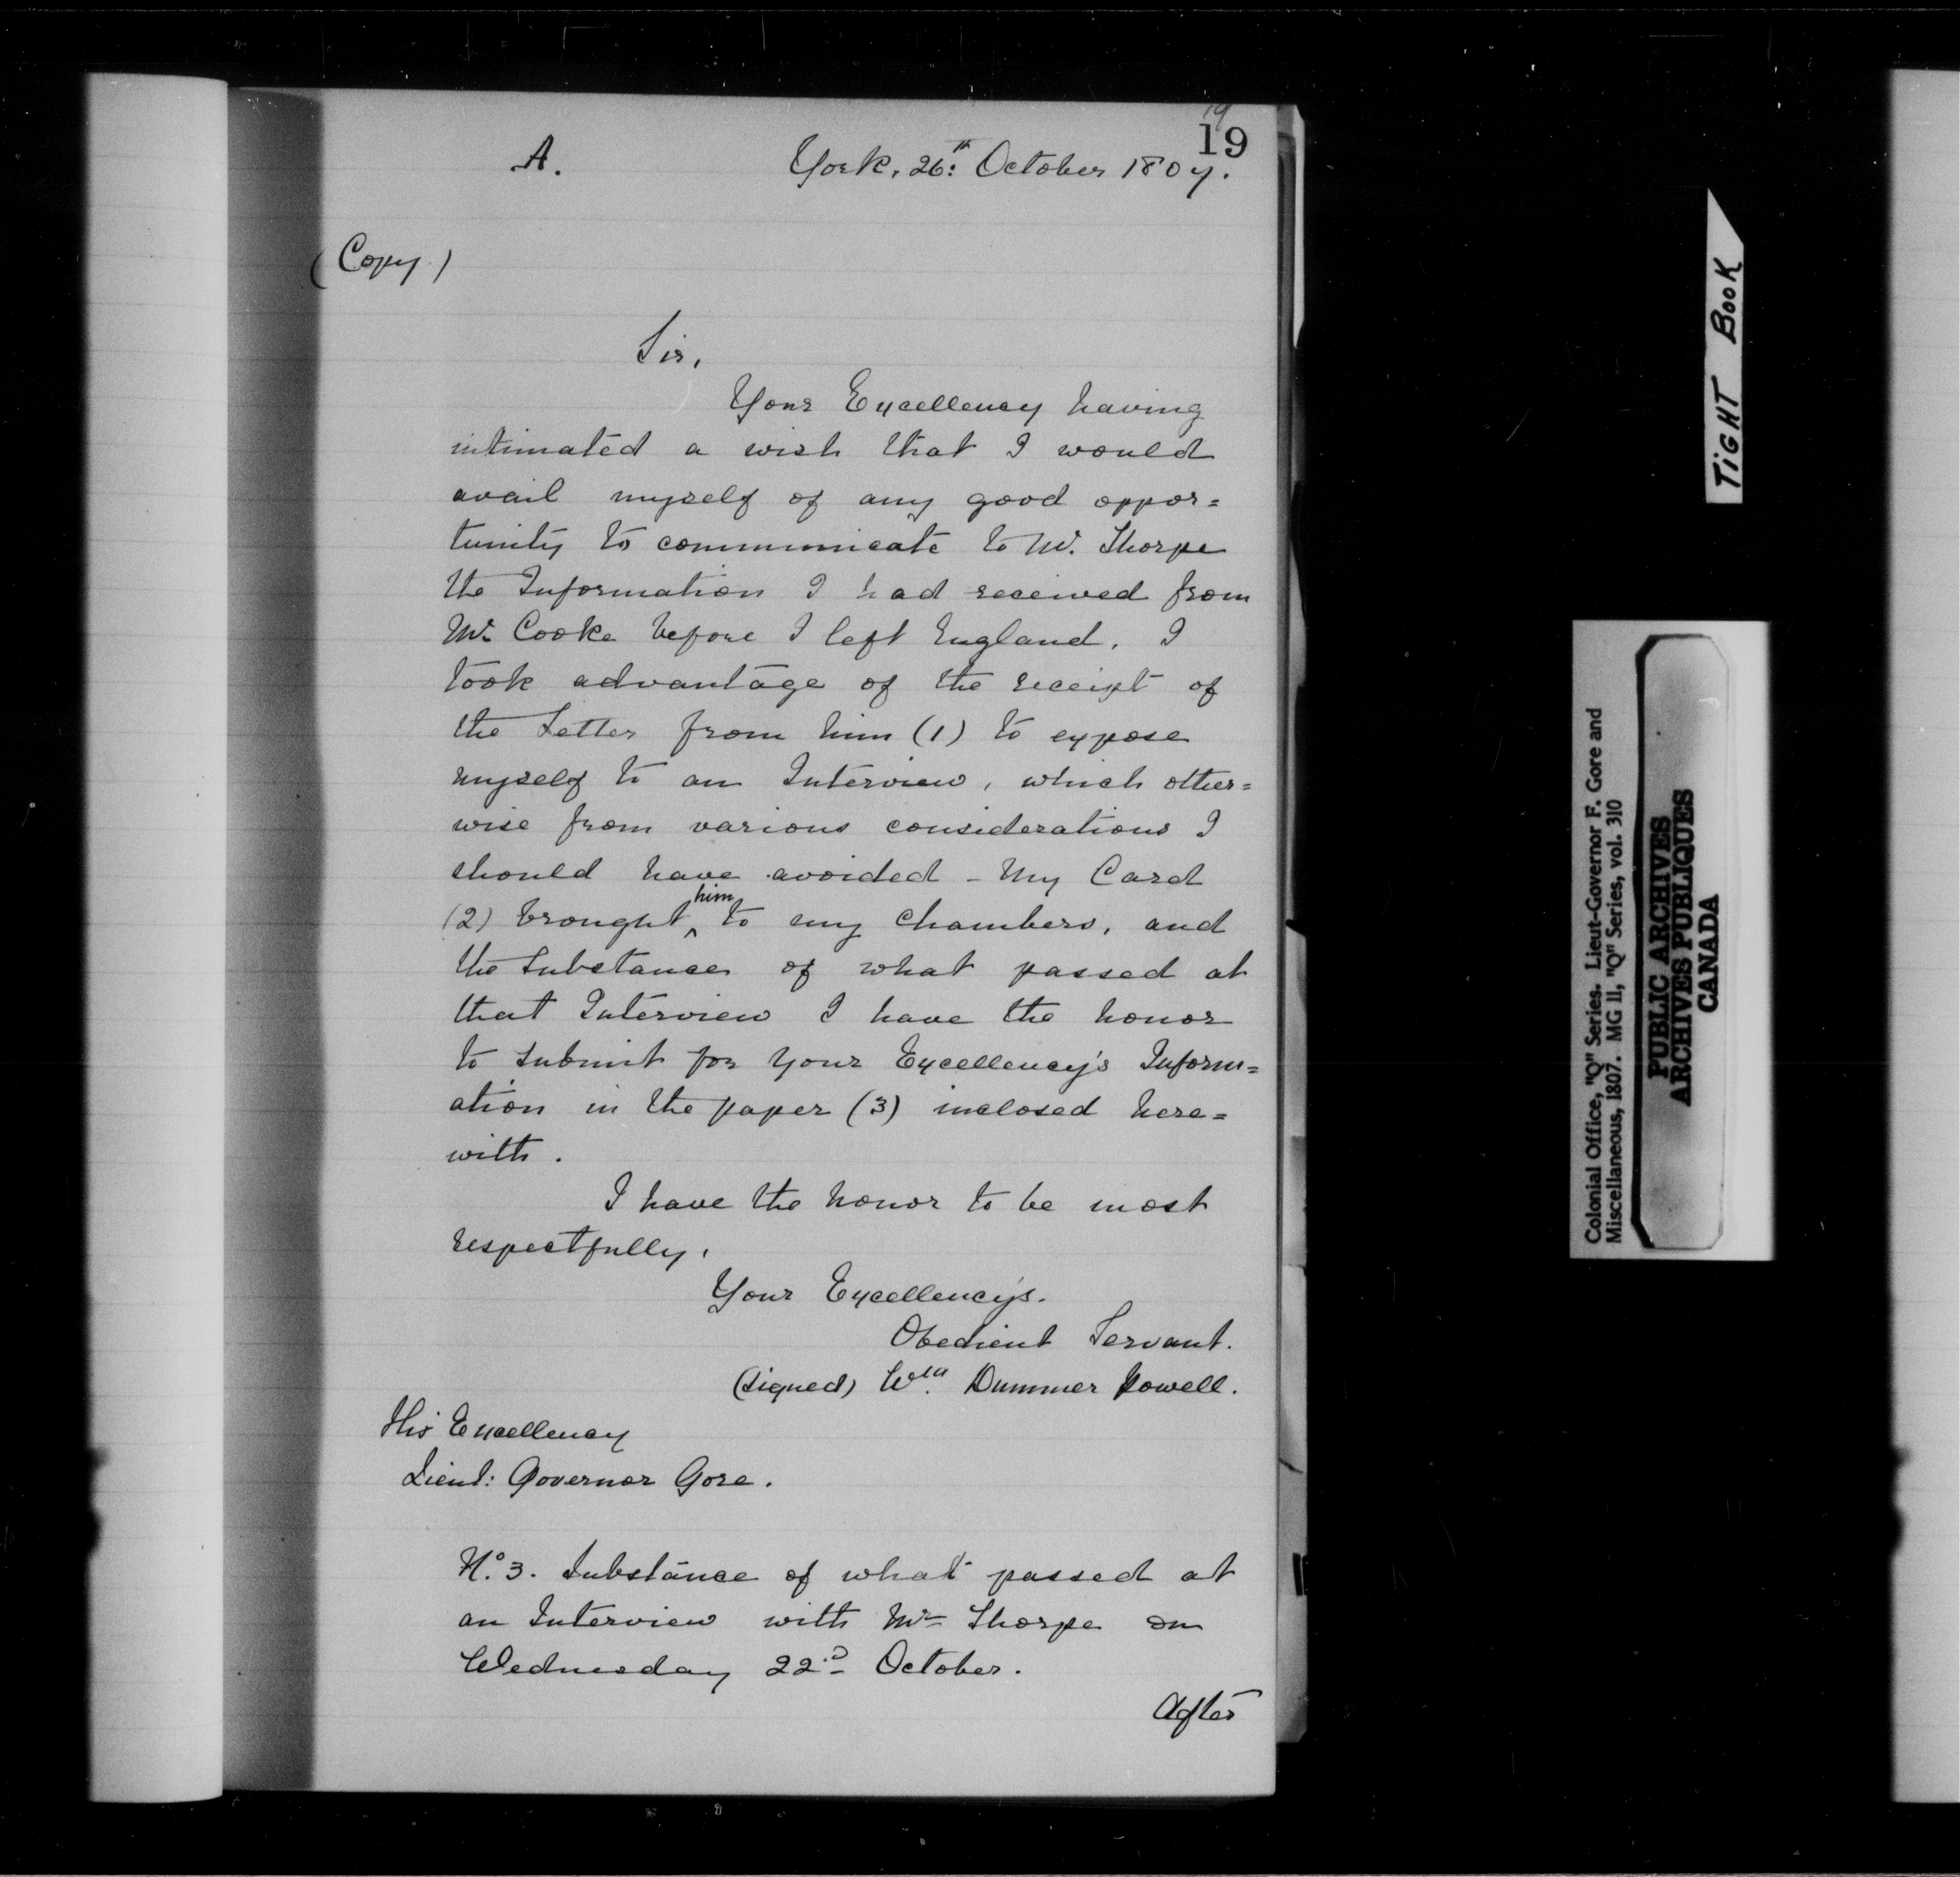 19
19
A. York, 26:th October 1807.
(Copy)
Sir,
Your Excellency having
intimated a wish that I would
avail myself of any good oppor=
tunity to communicate to Mr. Thorpe
the Information I had received from
Mr Cooke before I left England. I
took advantage of the receipt of
the Letter from him (1) to expose
myself to an Interview, which other=
wise from various considerations I
should have avoided - My Card
(2) brought ^him to my Chambers, and
the Substance of what passed at
that Interview I have the honor
to submit for Your Excellency's Inform=
ation in the paper (3) inclosed here=
with.
I have the honor to be most
respectfully,
Your Excellency's.
Obedient Servant.
(signed) Wm. Dummer Powell.
His Excellency
Lieut: Governor Gore.
No. 3. Substance of what passed at
an Interview with Mr Thorpe on
Wednesday 22.d October.
After
TIGHT BOOK
Colonial Office, "Q" Series. Lieut-Governor F. Gore and
Miscellaneous, 1807. MG 11, "Q" Series, vol. 310
PUBLIC ARCHIVES
ARCHIVES PUBLIQUES
CANADA